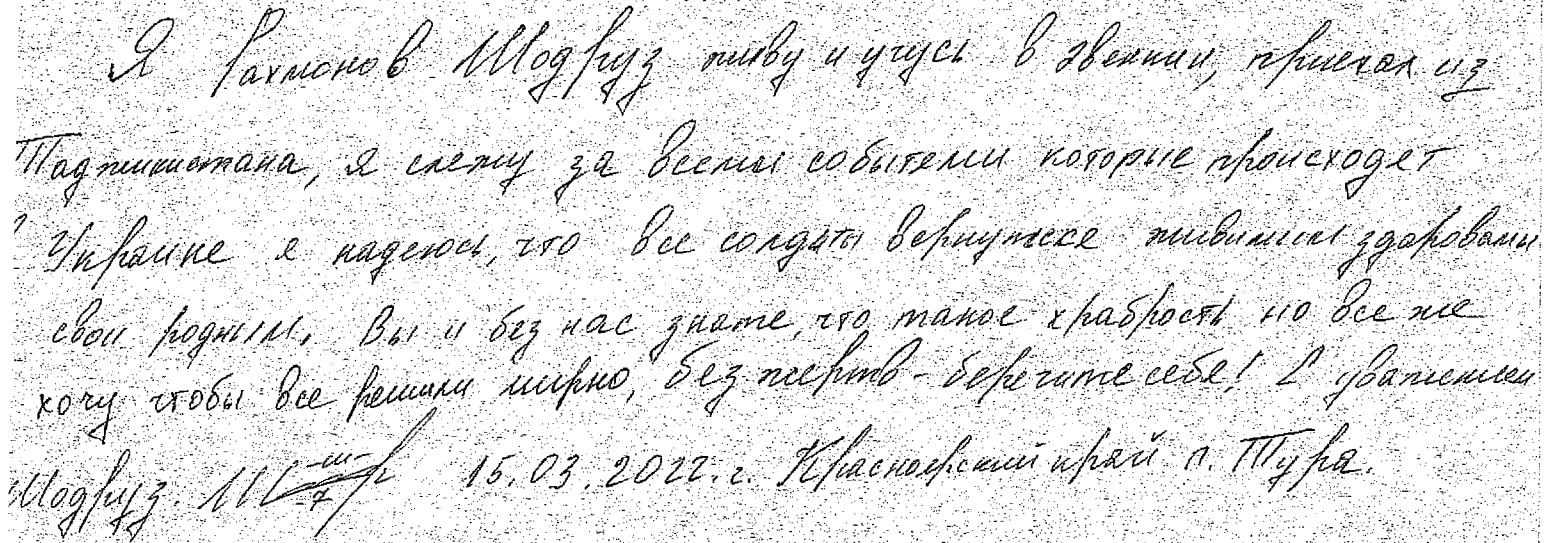 Я Рахмонов Шодруз живу и учусь в Эвенкии, приехал из
Таджикистана, я слежу за всеми событеми которые происходет
в Украине я надеюсь, что все солдаты вернутске живимии здоровыми
свои родным. Вы и без нас знате, что такое храбрость но все же
хочу чтобы все решили мирно, без жертв - берегите себе! С уважением
Шодруз. 15.03.2022.г. Красноярский край п. Тура.